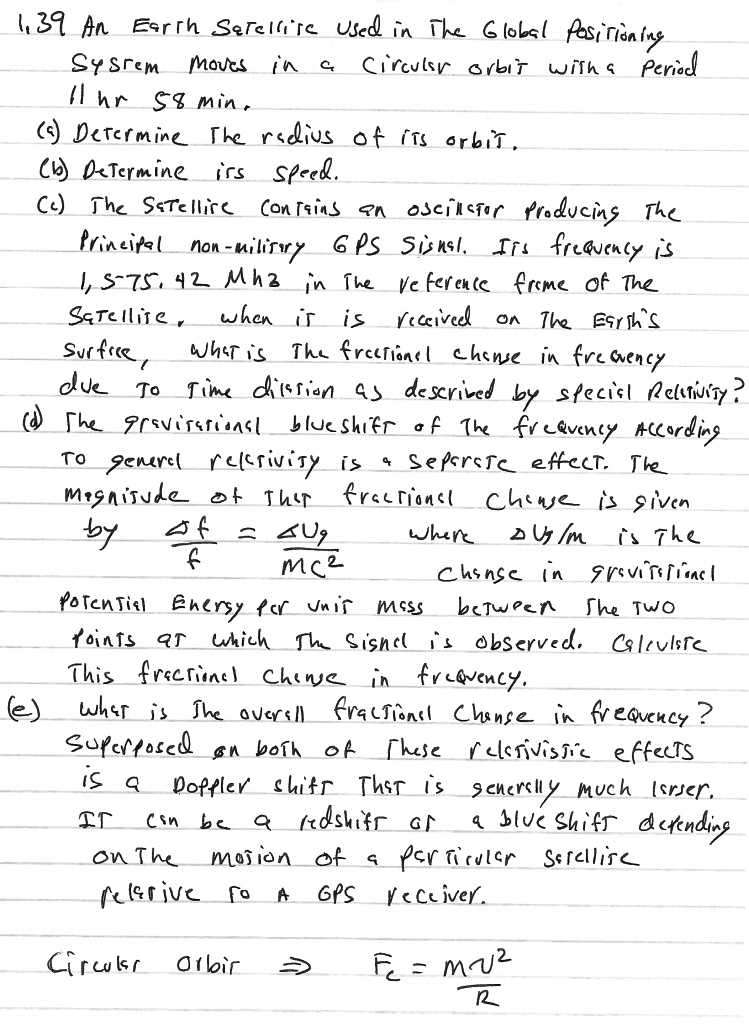 1.39 An Earth Satellite used in The Global Positioning
System moves in a circular orbit with a period
11 hr 58 min.
(a) Determine The radius of its orbit.
(b) Determine its speed.
(c) The Satellite contains an oscillator producing The
Principal non-military GPS Signal. Its frequency is
1,575.42 Mhz in The reference frame of The
Satellite. when it is received on The Earth's
Surface, what is The fractional change in frequency
due To Time dilation as described by special Relativity?
(d) The gravitational blueshift of The frequency According
To general relativity is a separate effect. The
Magnitude of That fractional change is given
by Δf/f = ΔUg/mc² where ΔUg/m is The
change in gravitational
Potential Energy per unit mass between The Two
Points at which The Signal is observed. Calculate
This fractional change in frequency.
(e) what is The overall fractional Change in frequency?
Superposed on both of These relativistic effects
is a Doppler shift That is generally much larger.
IT can be a redshift or a blue Shift depending
on The motion of a particular Satellite
relative To A GPS receiver.
Circular Orbit ⇒ Fc = mv²/R